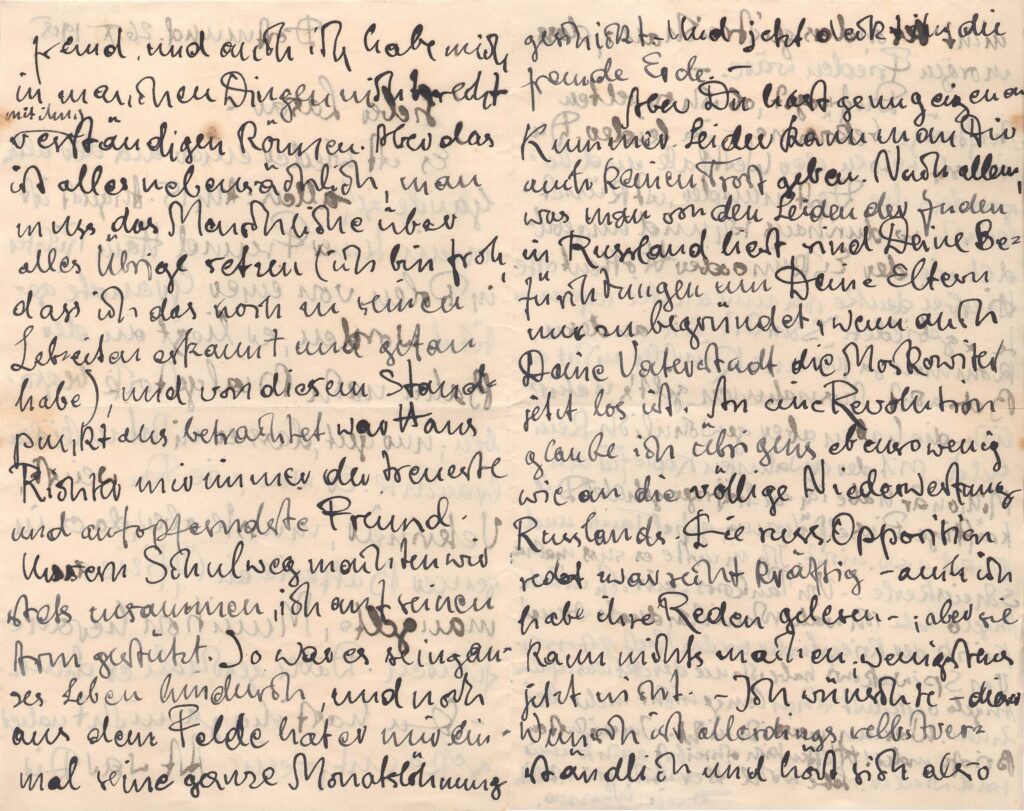 fremd, und auch ich habe mich
in manchen Dingen nicht recht
mit ihm
verständigen können. Aber das
ist alles nebensächlich, man
muss das Menschliche über
alles Übrige setzen (ich bin froh,
dass ich das noch zu seinen
Lebzeiten erkannt und getan
habe), und von diesem Stand-
punkt aus betrachtet, war Hans
Richter mir immer der treueste
und aufopferndste Freund.
Unsern Schulweg machten wir
stets zusammen, ich auf seinen
Arm gestützt. So war es sein gan-
zes Leben hindurch, und noch
aus dem Felde hat er mir ein-
mal seine ganze Monatslöhnung
geschickt. Und jetzt deckt ihn die
fremde Erde. –
Aber Du hast genug eigenen
Kummer. Leider kann man Dir
auch keinen Trost geben. Nach allem,
was man von den Leiden der Juden
in Russland liest sind Deine Be-
fürchtungen um Deine Eltern
nur zu begründet, wenn auch
Deine Vaterstadt die Moskowiter
jetzt los ist. An eine Revolution
glaube ich übrigens ebenso wenig
wie an die völlige Niederwerfung
Russlands. Die russ. Opposition
redet zwar recht kräftig – auch ich
habe ihre Reden gelesen –, aber sie
kann nichts machen, wenigstens
jetzt nicht. – Ich wünschte – dieser
Wunsch ist allerdings selbstver-
ständlich und hört sich also